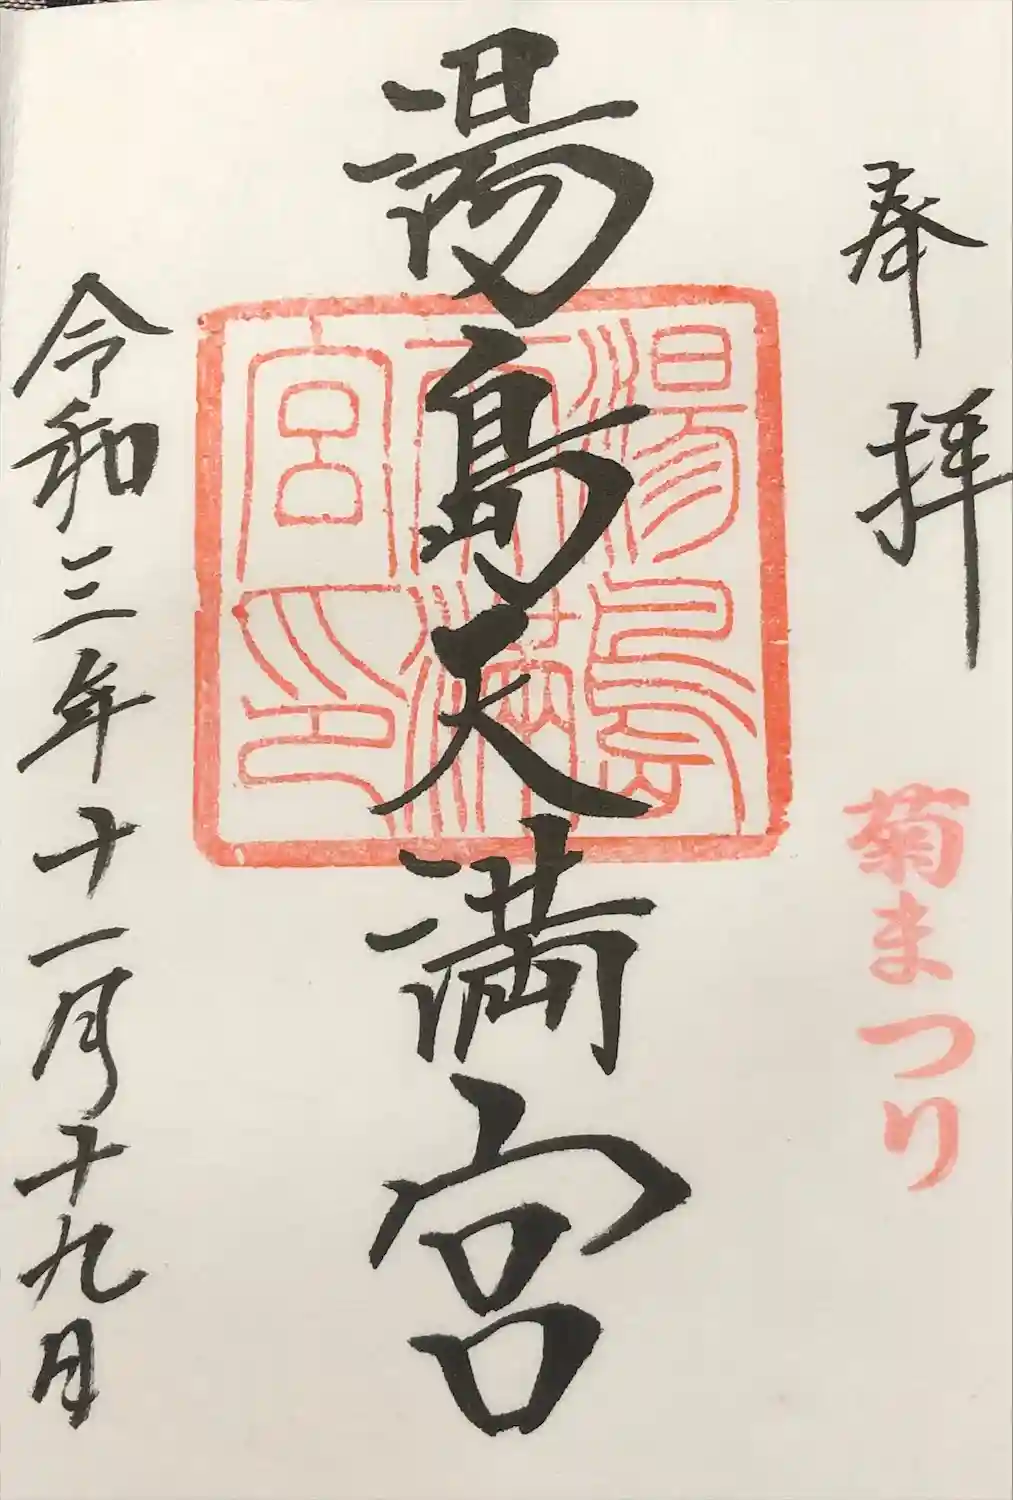 奉拝
菊まつり
湯島天満宮
湯島
天満
宮印
令和三年十一月十九日